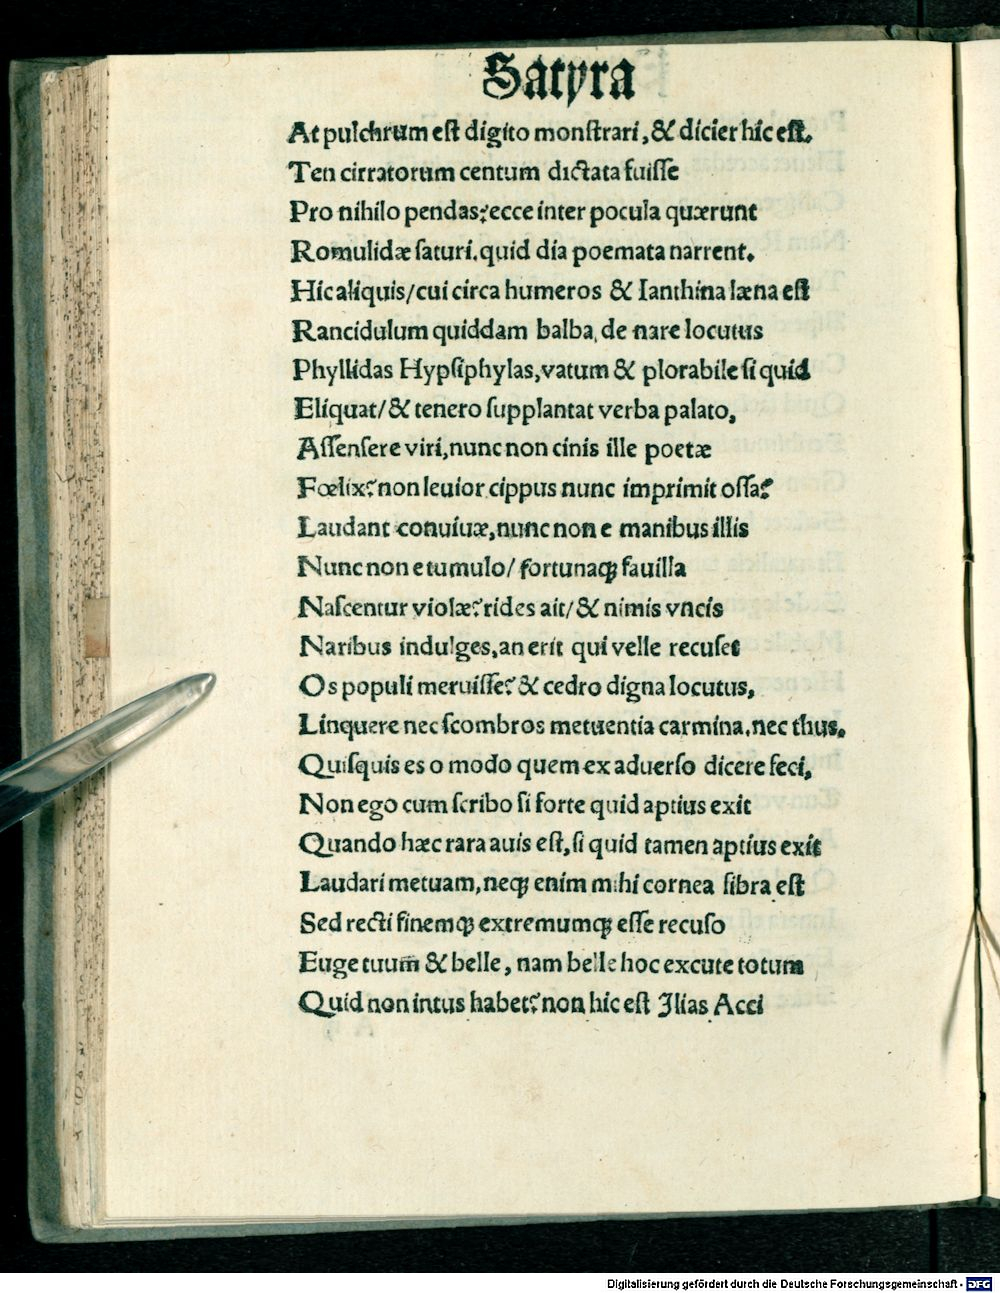 Satyra
At pulchrum est digito monstrari, & dicier hic est.
Ten cirratorum centum dictata fuisse
Pro nihilo pendas? ecce inter pocula quærunt
Romulidæ saturi. quid dia poemata narrent.
Hic aliquis/ cui circa humeros & Ianthina læna est
Rancidulum quiddam balba, de nare locutus
Phyllidas Hypsiphylas, vatum & plorabile si quid
Eliquat/ & tenero supplantat verba palato,
Assensere viri, nunc non cinis ille poetæ
Fœlix? non leuior cippus nunc imprimit ossa?
Laudant conuiuæ, nunc non e manibus illis
Nunc non e tumulo/ fortunaqꝫ fauilla
Nascentur violæ? rides ait/ & nimis vncis
Naribus indulges, an erit qui velle recuset
Os populi meruisse? & cedro digna locutus,
Linquere nec scombros metuentia carmina, nec thus.
Quisquis es o modo quem ex aduerso dicere feci,
Non ego cum scribo si forte quid aptius exit
Quando hæc rara auis est, si quid tamen aptius exit
Laudari metuam, neqꝫ enim mihi cornea fibra est
Sed recti finemqꝫ extremumqꝫ esse recuso
Euge tuum & belle, nam belle hoc excute totum
Quid non intus habet? non hic est Ilias Acci
Digitalisierung gefördert durch die Deutsche Forschungsgemeinschaft - DFG